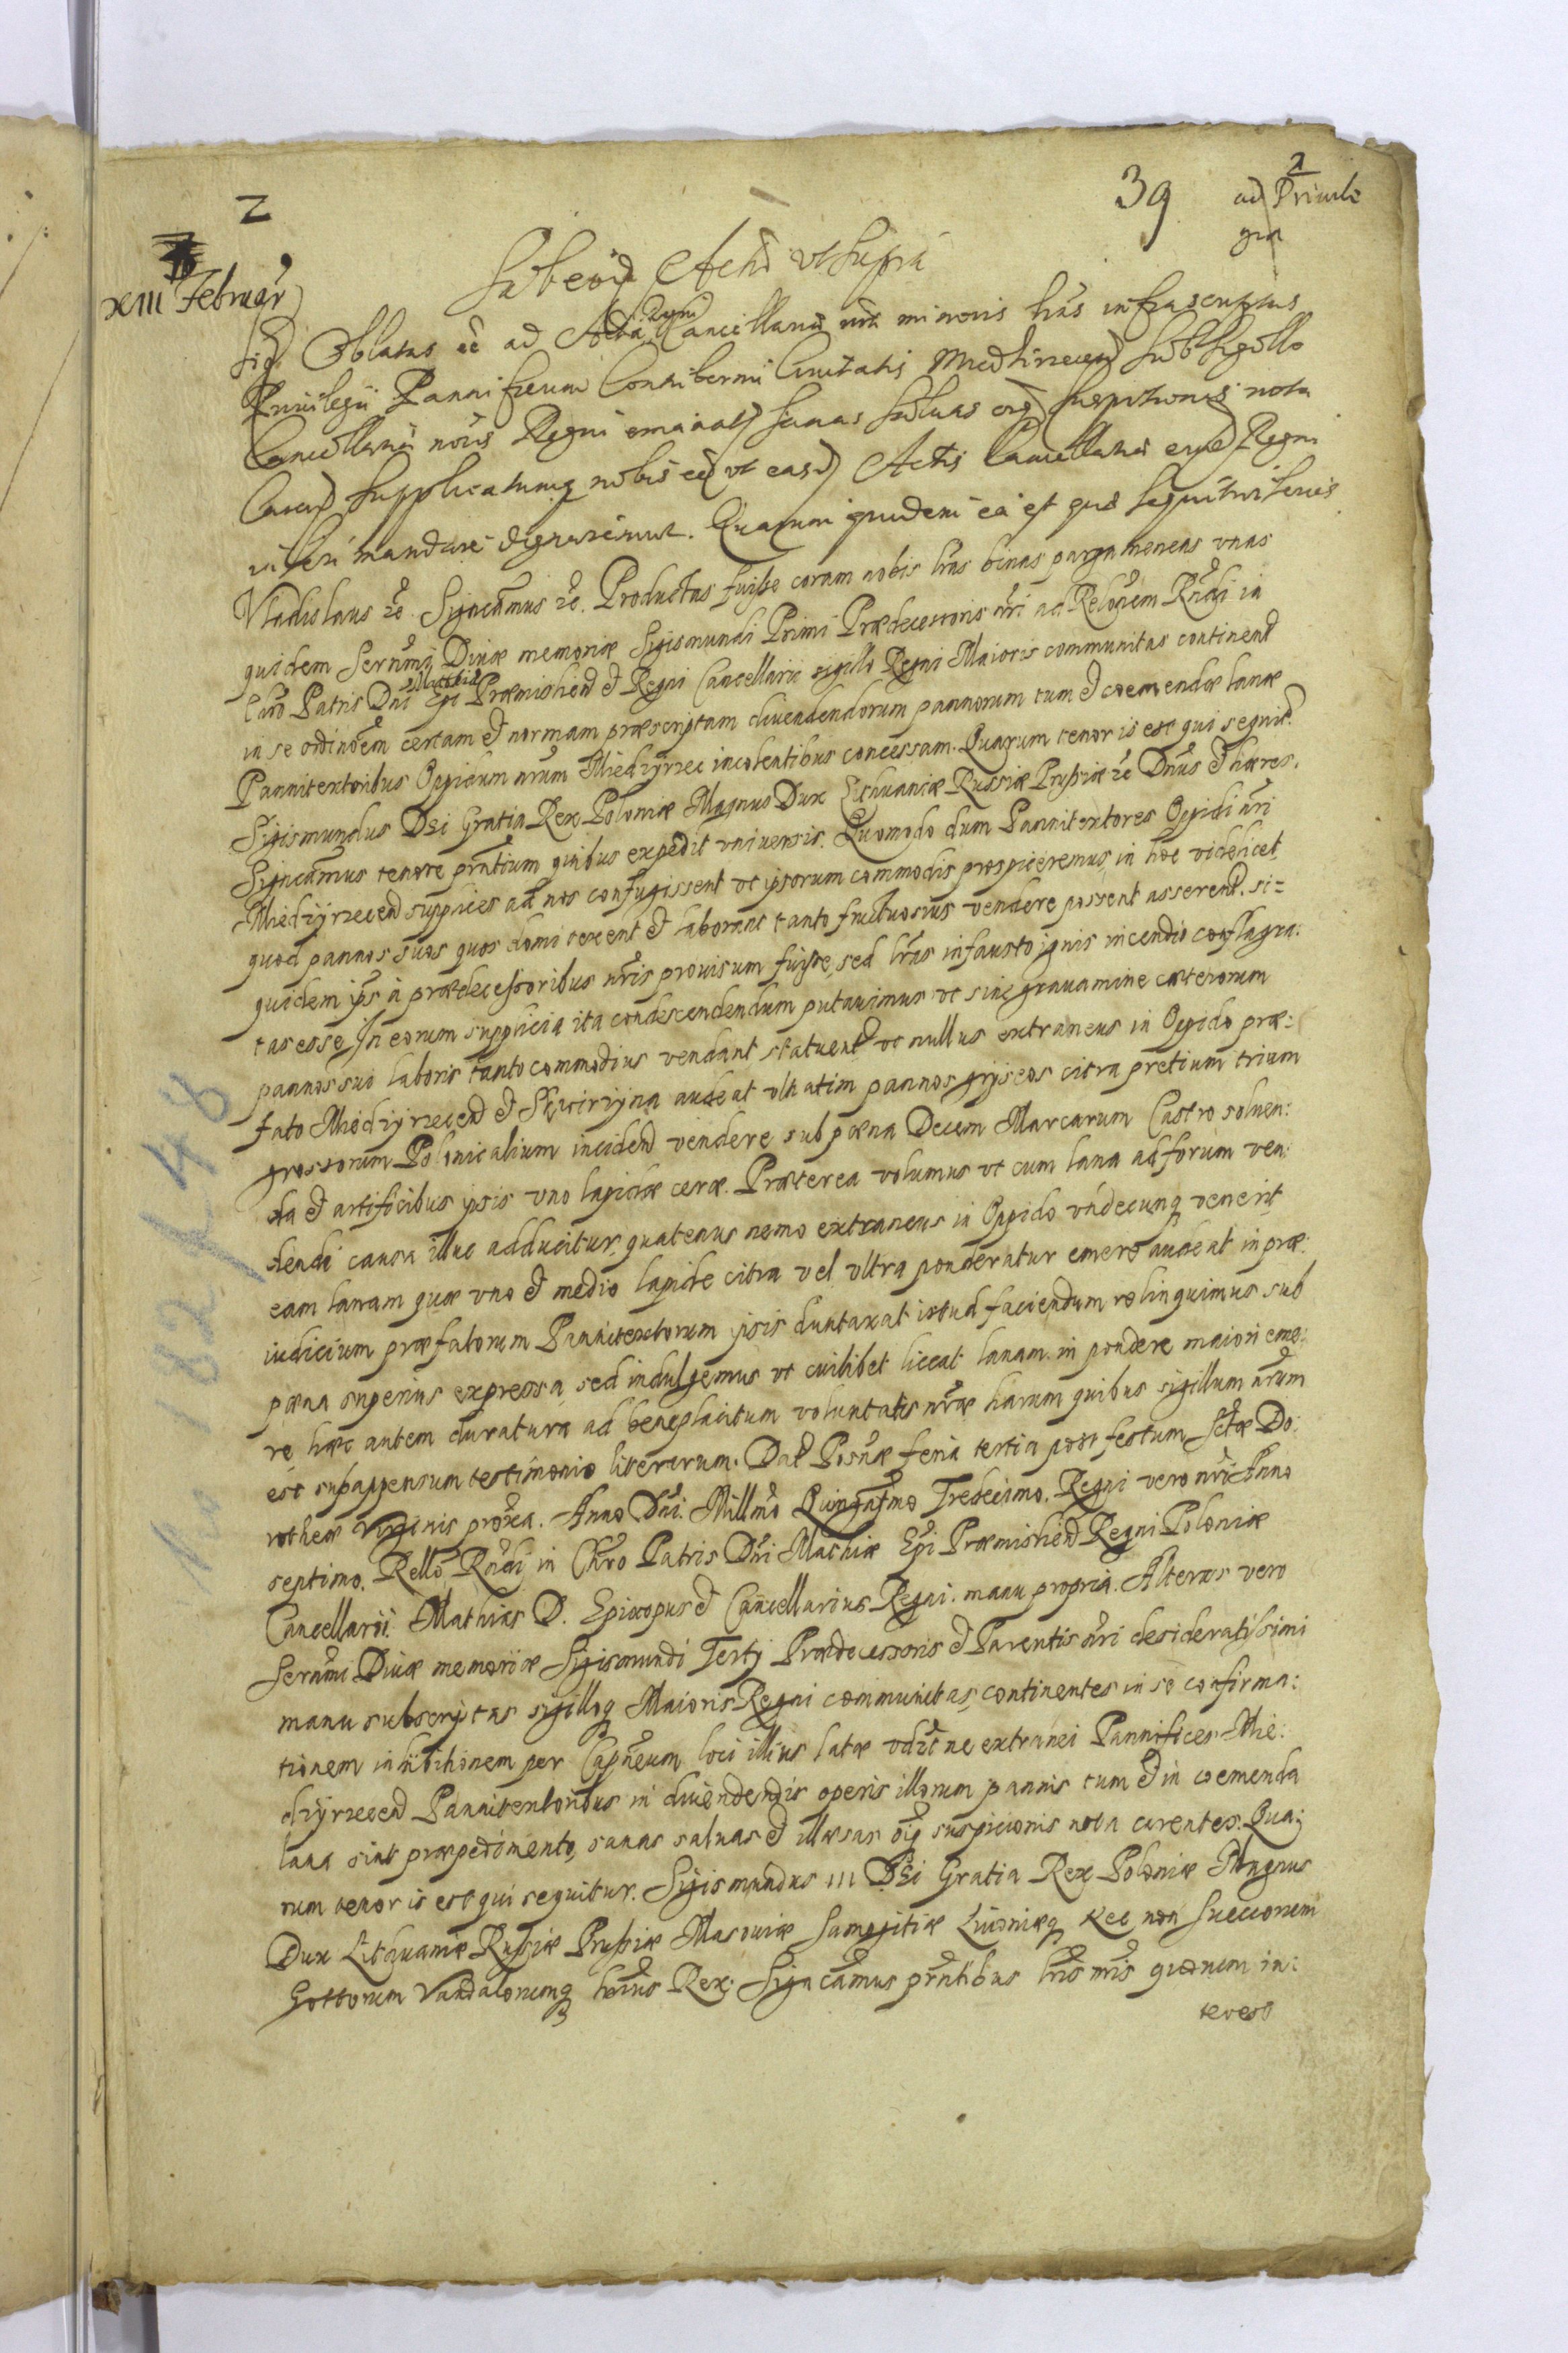 2
39
2
ad Priuile
gia
XIII Februar
Sub eod Actu ut supra
Sigd Oblatas eê ad Acta Regni Cancellariæ nrae minoris lras infrascriptas
Priuilegii Pannificum Contubernii Ciuitatis Miedzirzecen sub Sigillo
Cancellariæ Regni emanat sanas saluas suspitionis nota
Caren supplicatumq nobis eê ut easd Actis Cancellariæ Regni
inseri mandare dignaremur. Quarum quidem ea est quæ sequitur series
Vladislaus &c. Significamus &c. Productas fuisse coram nobis lras binas pargameneas vnas
quidem Serenmi Diuæ memoriæ Sigismundi Primi Prædecessoris nri ad Relonem Rndi in
Chro Patris Dni Mathiæ Epi Præmislien et Regni Cancellarii sigillo Regni Maioris communitas continen
in se ordinoem certam et normam præscriptam diuendendorum pannorum tum et coemendæ lanæ
Pannitextoribus Oppidum nrum Miedzyrzec incolentibus concessam. Quarum tenor is est qui sequit.
Sigismundus Dei Gratia Rex Poloniæ Magnus Dux Lithuaniæ Russiæ Prussiæ &c Dnus et hæres.
Significamus tenore prntium quibus expedit vniuersis. Quomodo dum Pannitextores Oppidi nri
Miedzyrzecen supplices ad nos confugissent vt ipsorum commodis prospiceremus in hoc videlicet
quod pannos suos quos domi texent et laborant tanto fructuosius vendere possent asseren. si=
quidem ips à prædecessoribus nris prouisum fuisse, sed lras infausto ignis incendio conflagra:
tas esse, In eorum supplicia ita condescendendum putauimus vt sine grauamine cæterorum
pannos sui laboris tanto commodius vendant statuent vt nullus extraneus in Oppido præ:
fato Miedzyrzecen et Skwirzyna audeat vlnatim pannos gryseos citra pretium trium
grossorum Polonicalium inciden vendere sub poena Decem Marcarum Castro soluen:
da et artificibus ipsis vno lapide ceræ. Præterea volumus vt cum lana ad forum ven:
dendi causa illuc adducitur, quatenus nemo extraneus in Oppido vndecunq venerit
eam lanam quæ vno et medio lapide citra vel vltra ponderatur emere audeat in præ:
iudicium præfatorum Pannitextorum ipsis duntaxat istud faciendum relinquimus sub
poena superius expressa, sed indulgemus vt cuilibet liceat lanam in pondere maiori eme:
re, hæc autem duratura ad beneplacitum voluntatis nræ harum quibus sigillum nrum
est subappensum testimonio literarum. Dat Posnæ feria tertia post festum sctæ Do:
rotheæ Virginis proxa. Anno Dni. Millmo Quingentmo Tredecimo. Regni vero nri Anno
septimo. Rello Rndi in Chro Patris Dni Mathiæ Epi Præmislien Regni Poloniæ
Cancellarii. Mathias D. Episcopus et Cancellarius Regni. manu propria. Alteras vero
Serenmi Diuæ memoriæ Sigismundi Tertij Prædecessoris et Parentis nri desideratissimi
manu subscriptas sigilloq Maioris Regni communitas, continentes in se confirma:
tionem inhibitionem per Capneum loci illius latæ vdlt ne extranei Pannifices Mie:
dzyrzecen Pannitextoribus in diuendendis operis illorum pannis tum et in coemenda
lana sint præpedimento, sanas saluas et illæsas oiq suspicionis nota carentes. Qua:
rum tenor is est qui sequitur. Sigismundus III Dei Gratia Rex Poloniæ Magnus
Dux Lithuaniæ Russiæ Prussiæ Masouiæ Samogitiæ Liuoniæq Nec non Sueccorum
Gottorum Vandalorumq hrius Rex. Significamus prntibus lris nris quorum in:
terest